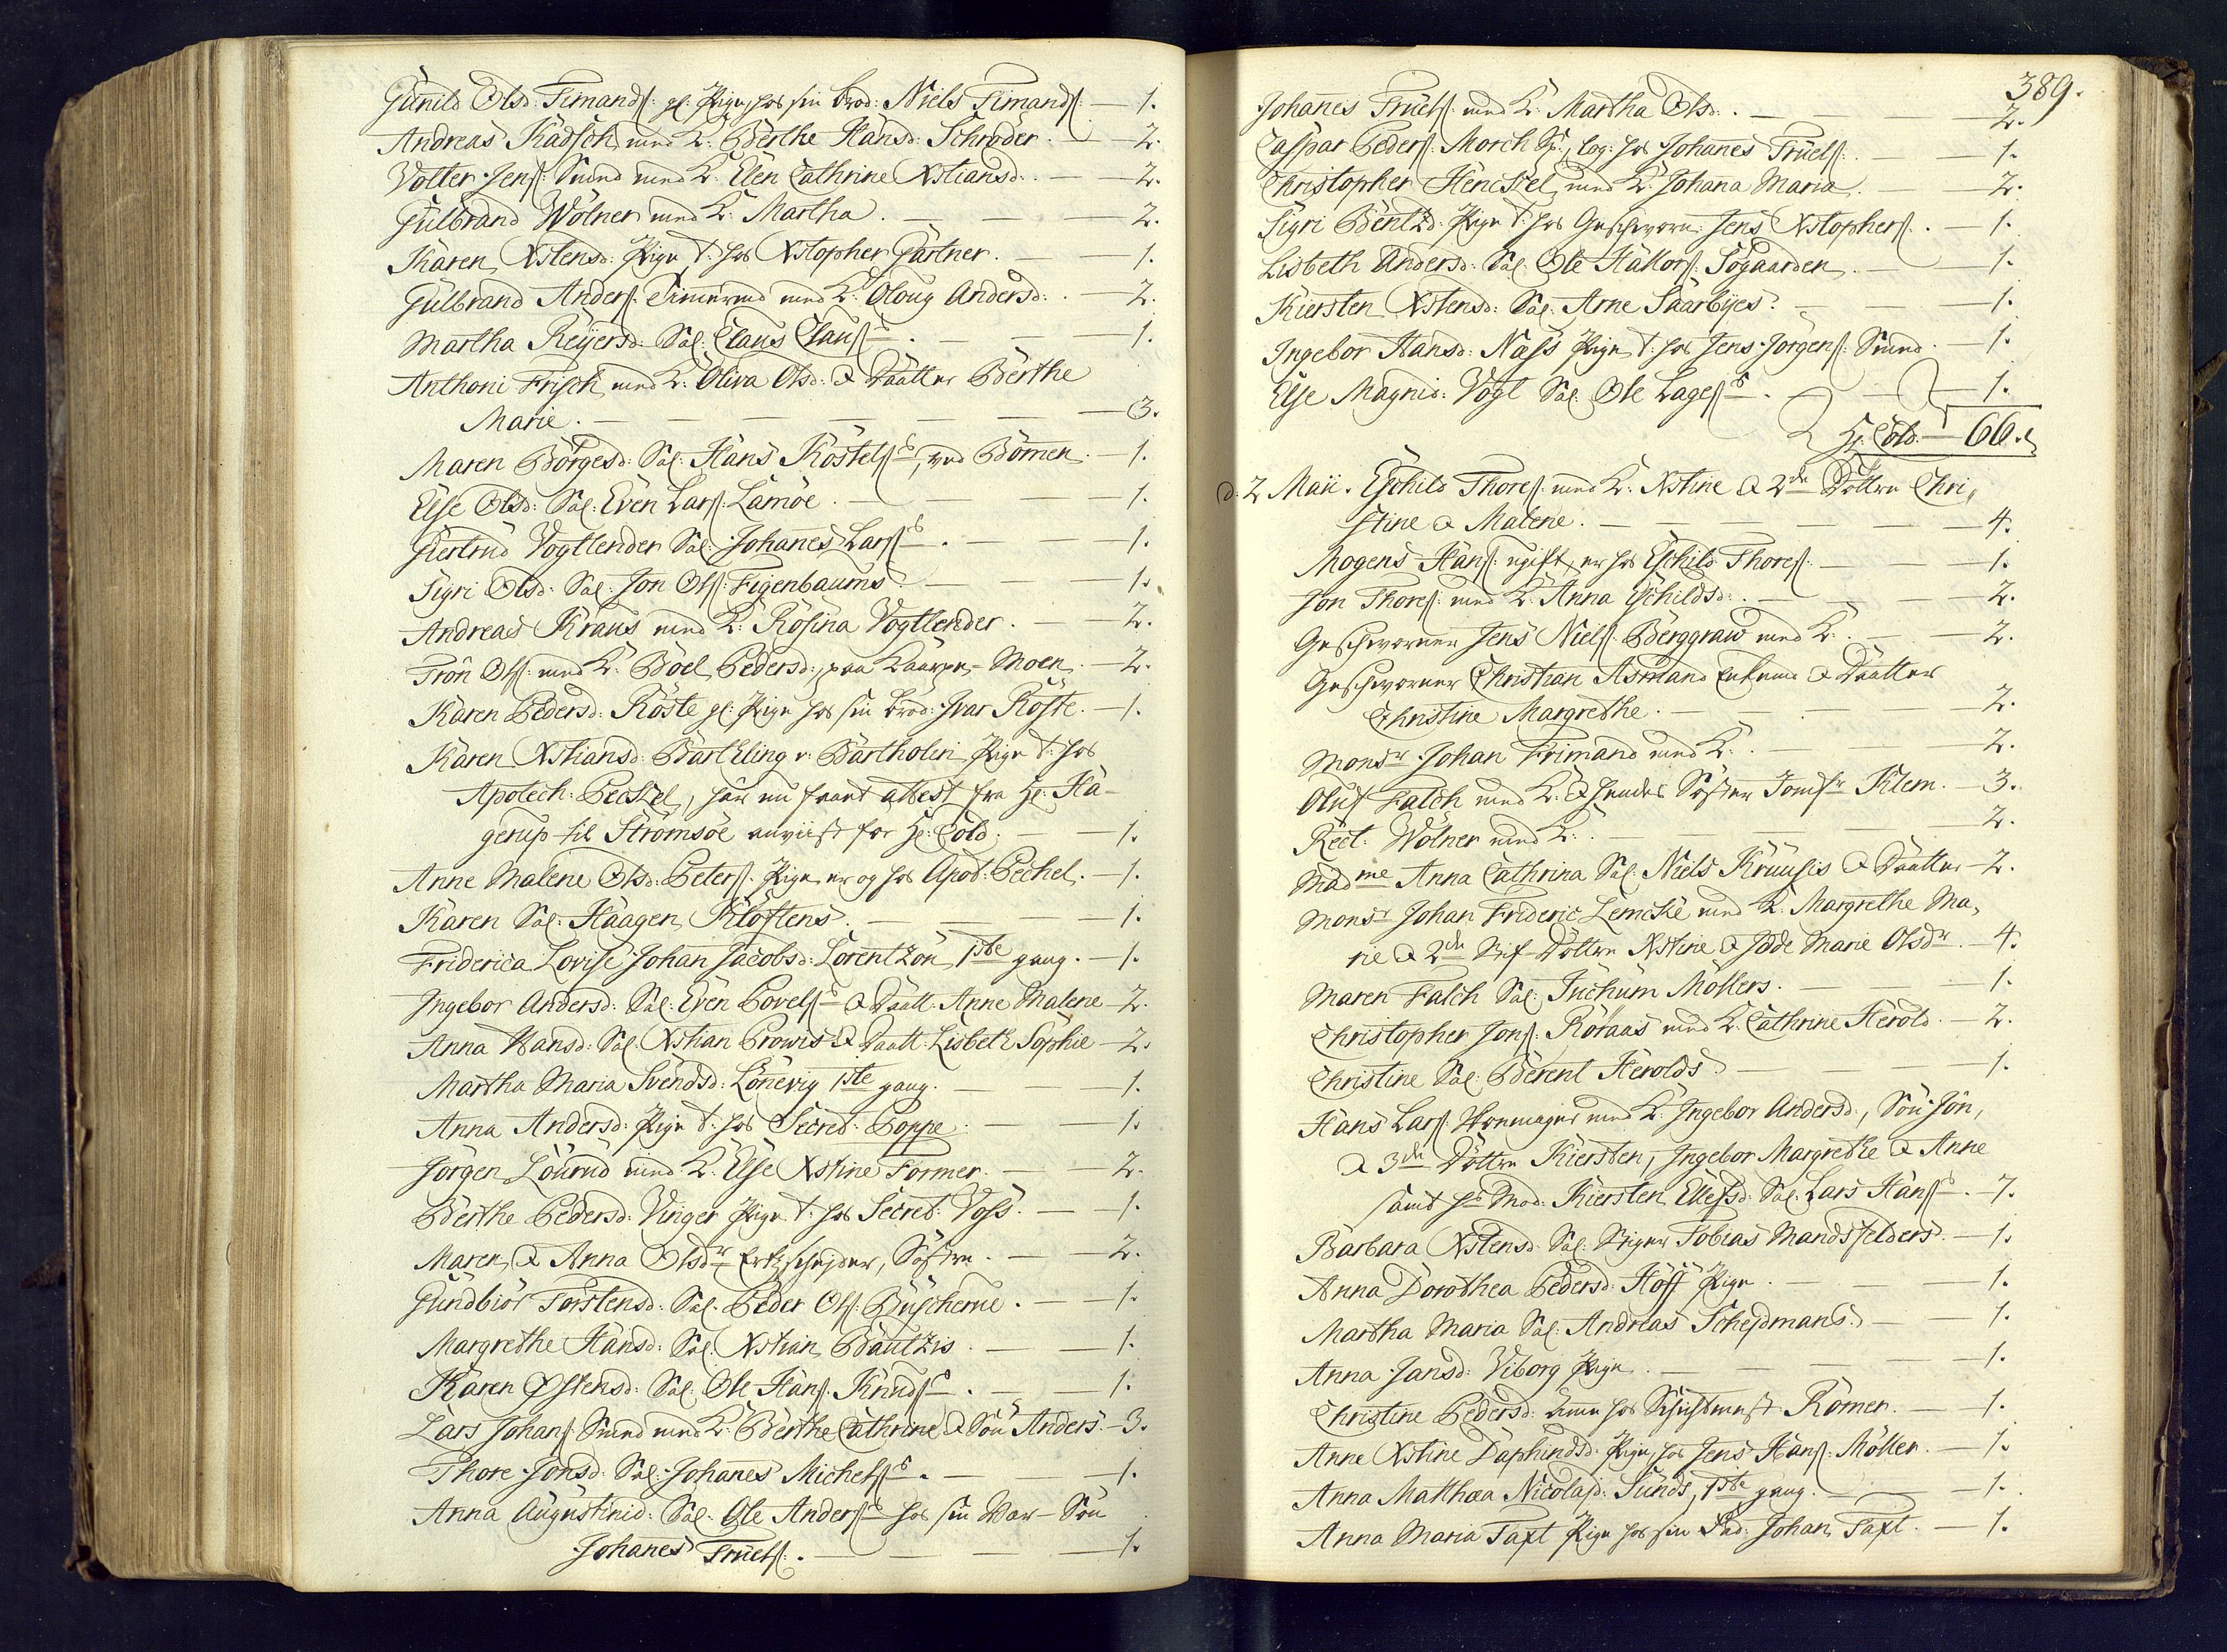 Gunild Olsd: Timands: gl: Pige, hos sin brod: Niels Timands: — 1.
Andreas Kadsch med K: Berthe Hansd: Schröder. — 2.
Volter Jens: Smed med K: Elen Cathrine Xstiansd. — 2.
Gulbrand Wölner med K: Martha. — 2.
Karen Xstensd: Pige t: hos Xstopher Gärtner. — 1.
Gulbrand Anders: med K: Oloug Andersd: — 2.
Martha Reyersd: Sal: Claus Claus — 1.
Anthoni Frisch med K: Oliva Olsd: & Daatter Berthe
Marie. — 3.
Maren Börgesd: Sal: Hans Röstels, ved Bommen. — 1.
Else Olsd: Sal: Even Lars: Lamöe. — 1.
Giertrud Vogtlender Sal: Johanes Lars — 1.
Sigri Olsd: Sal: Jon Ols: Figenbaums — 1.
Andreas Kraus med K: Rosina Vogtlender. — 2.
Trön Ols: med K: Böel Pedersd: paa Moen. — 2.
Karen Pedersd: Röste gl: Pige hos sin brod: Ivar Röste. — 1.
Karen Xstiansd: Bartling v: Bartholin Pige t: hos
Apotech: Peckel, har nu attest fra Hr: Ha-
gerup til Strömsöe anviist for Hr: Cold. — 1.
Anne Malene Olsd: Peters: Pige er og hos Apod: Pechel. — 1.
Karen Sal: Haagen Kloftens. — 1.
Friderica Lovise Johan Jacobsd: Lorentzön 1ste gang. — 1.
Ingebor Andersd: Sal: Even Povels & Daatt: Anne Malene — 2.
Anna Hansd: Sal: Xstian Prowis & Daatt: Lisbeth Sophie — 2.
Martha Maria Svendsd: Lönevig 1ste gang. — 1.
Anna Andersd: Pige t: hos Secret: Poppe. — 1.
Jörgen Lourud med K: Else Xstine Former. — 2.
Berthe Pedersd: Vinger Pige t: hos Secret: Voss. — 1.
Maren & Anna Olsdr Ertzscheider, Söstre. — 2.
Gundbiör Torstensd: Sal: Peder Ols: Buscherne. — 1.
Margrethe Hansd: Sal: Xstian Bautzis. — 1.
Karen Østensd: Sal: Ole Hans: Knuds — 1.
Lars Johans: Smed med K: Berthe Cathrine & Sön Anders. — 3.
Thore Jonsd: Sal: Johanes Michels — 1.
Anna Augustinid: Sal: Ole Anders hos sin Sön
Johanes Truels: — 1.
389.
Johanes Truels: med K: Martha Olsd: — 2.
Caspar Peders: Morch log: hos Johanes Truels: — 1.
Christopher Henckel med K: Johana Maria. — 2.
Sigri Bentzd: Pige t: hos Geschworn: Jens Xstophers: — 1.
Lisbeth Andersd: Sal: Ole Hallors: Sögaarden. — 1.
Kiersten Xstensd: Sal: Arne Saarbyes: — 1.
Ingebor Hansd: Næss Pige t: hos Jens Jörgens: Smed. — 1.
Else Magnid: Vogt Sal: Ole Lages — 1.
Hr: Cold — 66.
d: 2 Maii. Eschild Thores: med K: Xstine & 2de Döttre Chri-
stine & Malene. — 4.
Mogens Hans: ugift, er hos Eschild Thores: — 1.
Jon Thores: med K: Anna Eschildsd: — 2.
Geschworner Jens Niels: Berggraw med K: — 2.
Geschworner Christian Asmand Enkemd & Daatter
Christine Margrethe. — 2.
Monsr Johan Frimand med K: — 2.
Oluf Falch med K: & hendes Söster Jomfr Klem. — 3.
Rect: Wölner med K: — 2.
Madme Anna Cathrina Sal: Niels Kruusis & Daatter — 2.
Monsr Johan Frideric Lemcke med K: Margrethe Ma-
rie & 2de Stif Döttre Xstine & Jdde Marie Olsdr — 4.
Maren Falch Sal: Juchum Möllers. — 1.
Christopher Jons: Röraas med K: Cathrine Herold. — 2.
Christine Sal: Berent Herolds — 1.
Hans Lars: med K: Ingebor Andersd:, Sön Jön,
& 3de Döttre Kiersten, Ingebor Margrethe & Anne
samt hs Mod: Kiersten Ellefsd: Sal: Lars Hans — 7.
Barbara Xstensd: Sal: Stiger Tobias Mandsfelders — 1.
Anna Dorothea Pedersd: Hoff Pige. — 1.
Martha Maria Sal: Andreas Schejdmans — 1.
Anna Jansd: Viborg Pige. — 1.
Christine Pedersd: Amme hos Schichtmest: Römer. — 1.
Anne Xstine Daphindsd: Pige, hos Jens Hans: Möller. — 1.
Anna Matthæa Nicolajd: Sunds, 1ste gang. — 1.
Anna Maria Taxt Pige hos sin Fad: Johan Taxt. — 1.